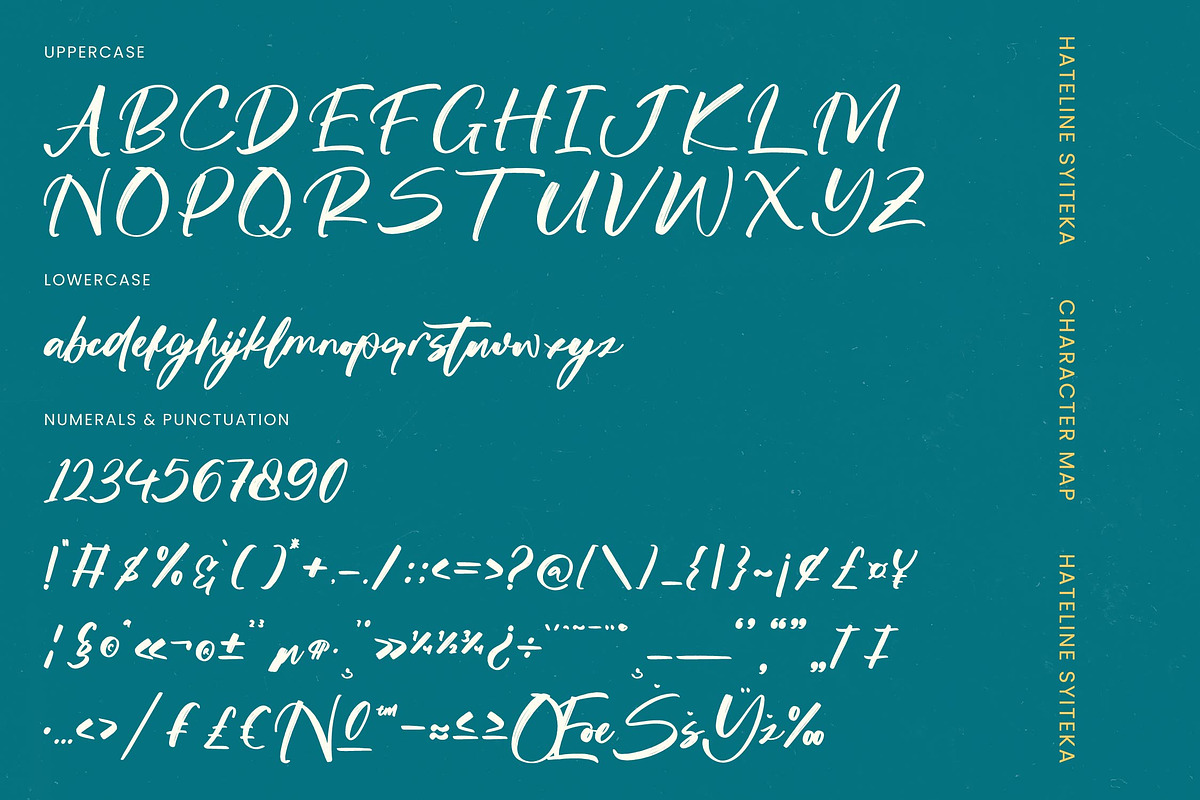 UPPERCASE
ABCDEFGHIJKLM
NOPQRSTUVWXYZ
LOWERCASE
abcdefghijklmnopqrstuvwxyz
NUMERALS & PUNCTUATION
1234567890
!"#$%&'()*+,-./:;<=>?@[\]_{|}~¡¢£¤¥
¦§©ª«¬®±²³µ¶·¸¹º»¼½¾¿÷ – — ‘’ ‚ “” „ † ‡
•…‹›⁄₣₤€№™−≈≤≥ŒœŠšŸž‰
HATELINE SYITEKA
CHARACTER MAP
HATELINE SYITEKA